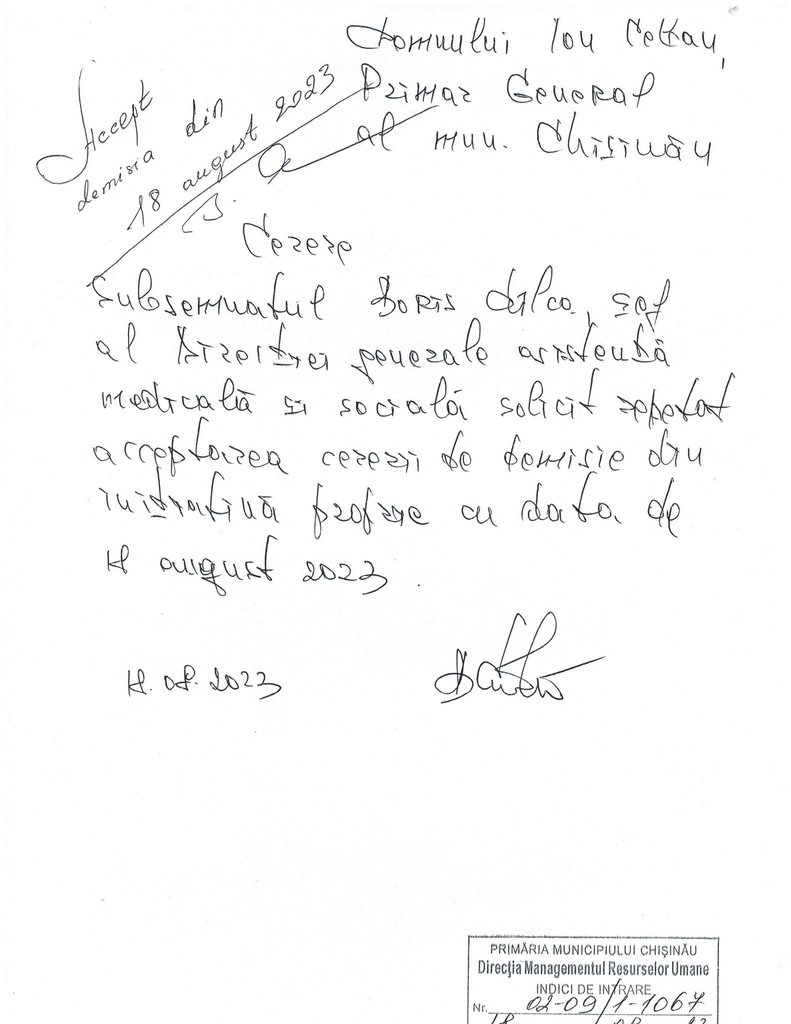 Domnului Ion Ceban,
Primar General
al mun. Chișinău
Accept
demisia din
18 august 2023
Cerere
Subsemnatul Boris Gîlca, șef
al Direcției generale asistență
medicală și socială solicit repetat
acceptarea cererii de demisie din
inițiativă proprie cu data de
18 august 2023.
18.08.2023
PRIMĂRIA MUNICIPIULUI CHIȘINĂU
Direcţia Managementul Resurselor Umane
INDICI DE INTRARE
Nr. 02-09/1-1067
18 08 23